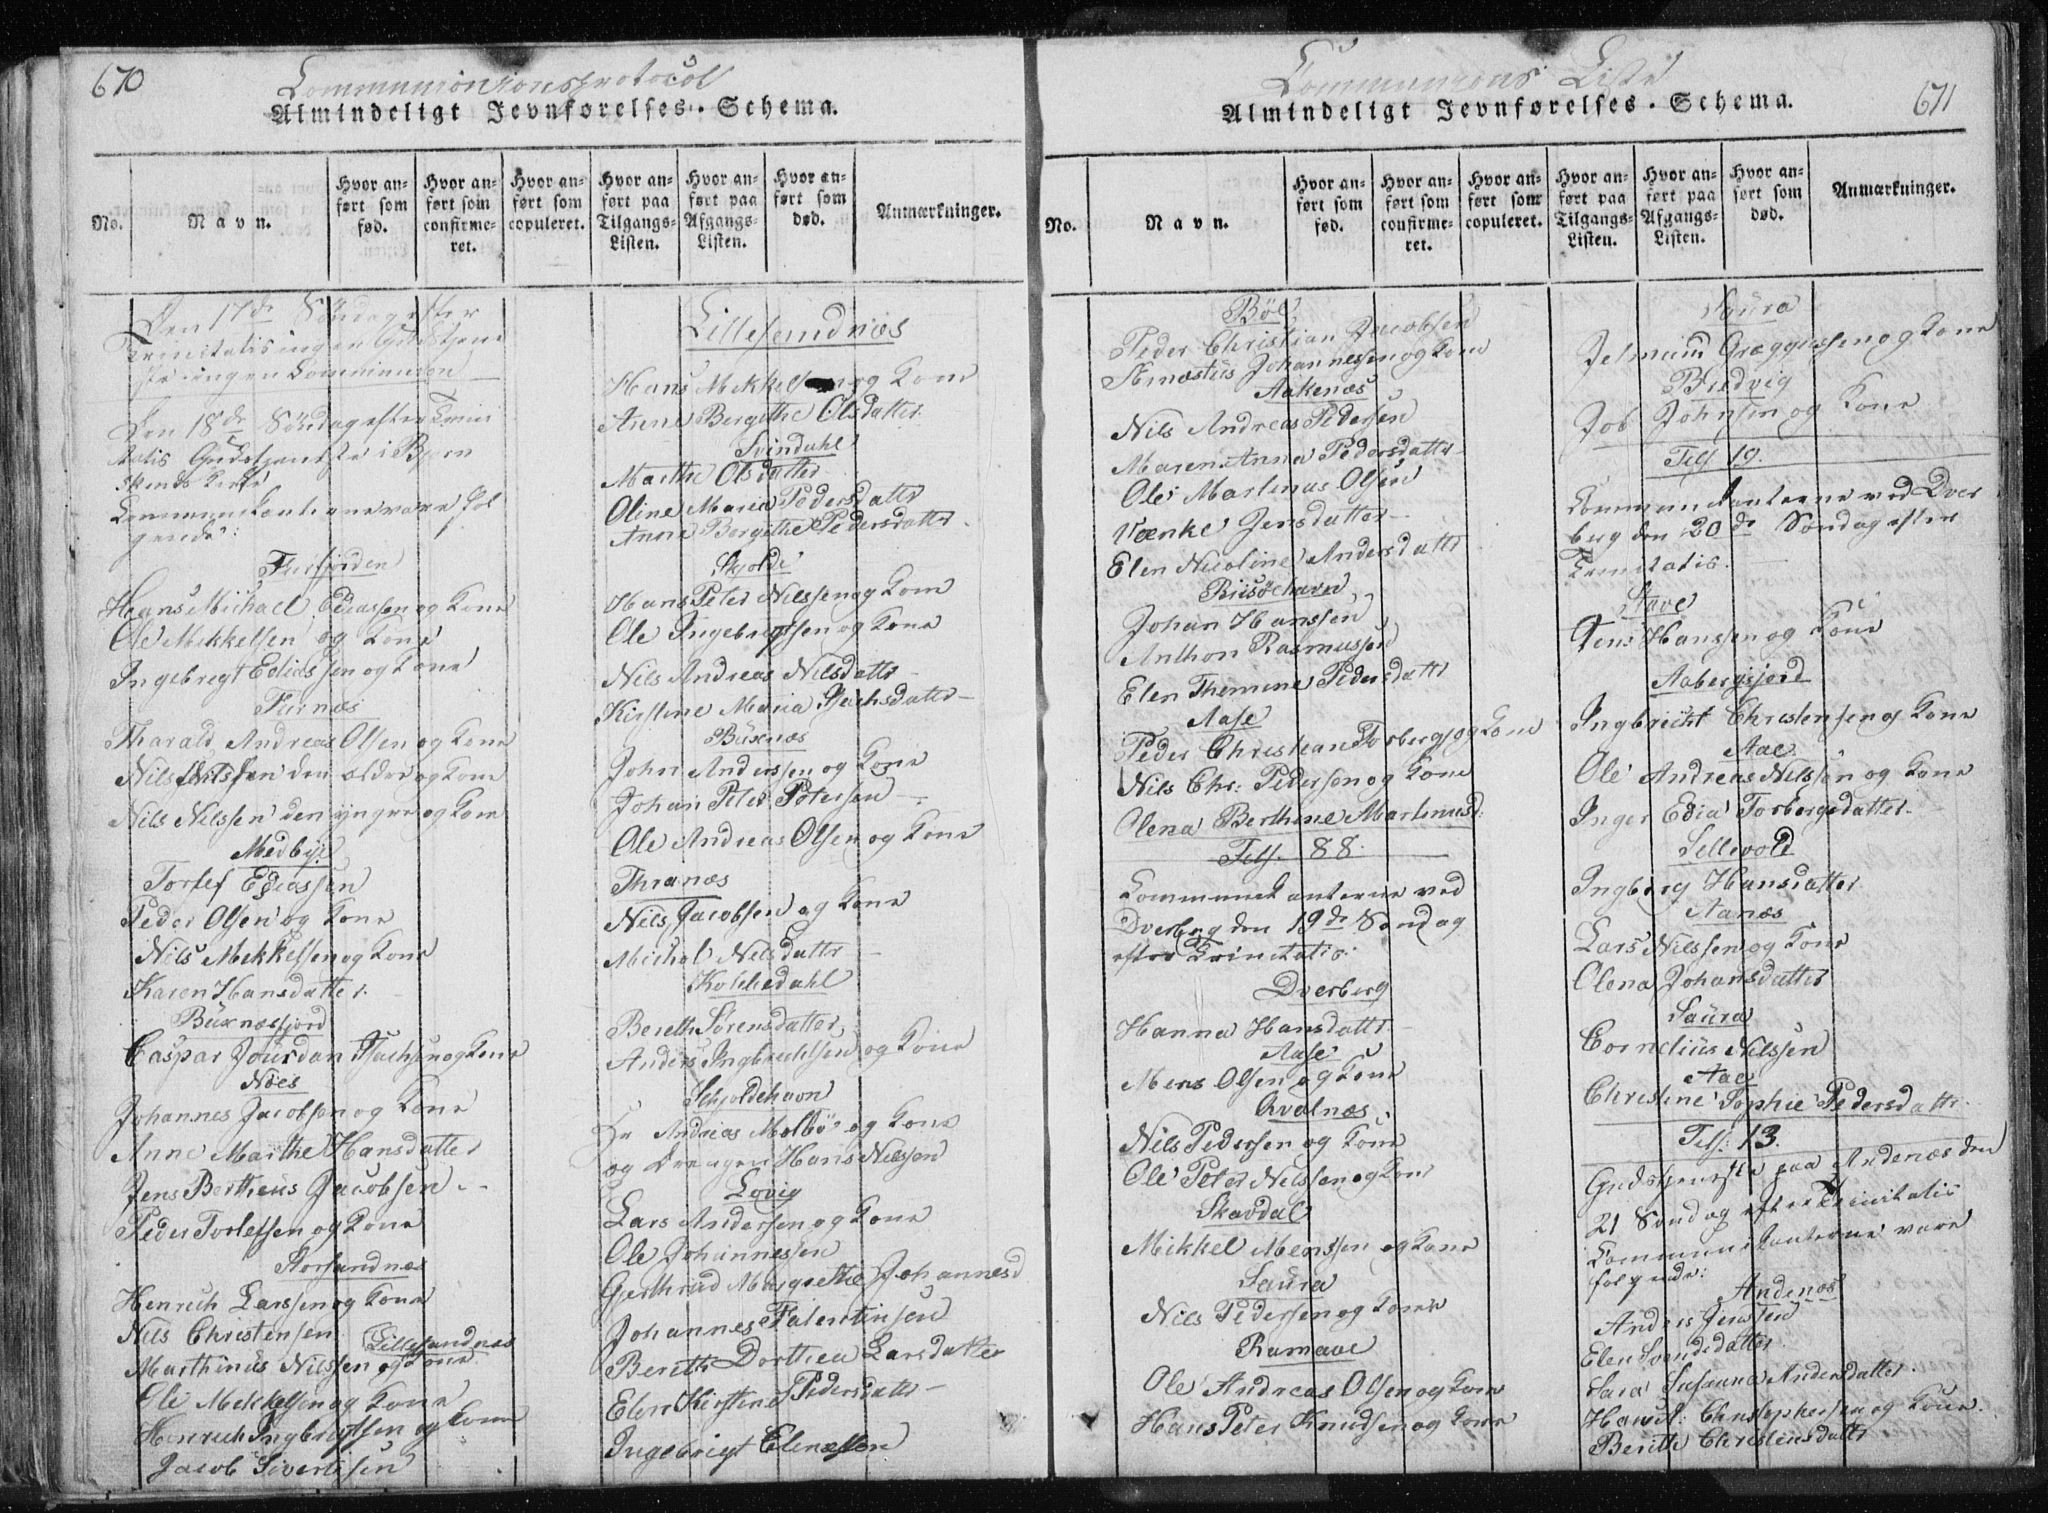 670
Communionsprotocoll
Almindeligt Jevnførelses-Schema.
No.
Navn.
Hvor anført som fød.
Hvor anført som confirmeret.
Hvor anført som copuleret.
Hvor anført paa Tilgangs-Listen.
Hvor anført paa Afgangs-Listen.
Hvor anført som død.
Anmærkninger.
Den 17de Søndag efter
Trinitatis ingen Gudstjene
ste ingen Communion
Den 18de Søndag efter Trini
tatis Gudstjeneste i Bjørn
skinds Kirke
Communicanterne vare føl
gende:
Fiirfjorden
Hans Michael Ediassen og Kone
Ole Mikkelsen og Kone
Ingebregt Ediassen og Kone
Fiirnæs
Tharald Andreas Olsen og Kone
Nils Nilssen den ældre og Kone
Nils Nilssen den yngre og Kone
Medbye
Torlef Ediassen
Peder Olsen og Kone
Nils Mikkelsen og Kone
Karen Hansdatter
Buxnæsfjord
Caspar Jourdan Isachsen og Kone
Næs
Johannes Jacobsen og Kone
Anne Marthe Hansdatter
Jens Bertheus Jacobsen
Peder Torlefsen og Kone
Storsandnæs
Henrich Larssen og Kone
Nils Christensen
Lillesandnæs
Marthinus Nilssen og Kone
Ole Mikkelsen og Kone
Henrich Ingbregtsen og Kone
Jacob Sivertsen
Lillesandnæs
Hans Mikkelsen og Kone
Anne Bergithe Olsdatter
Svindahl
Marthe Olsdatter
Oline Maria Pedersdattr
Anne Bergithe Pedersdattr
Skjolde
Hans Peter Nilssen og Kone
Ole Ingebregtsen og Kone
Nils Andreas Nilsdattr
Kirstine Maria Isachsdattr
Buxnæs
John Anderssen og Kone
Johan Peter Petersen
Ole Andreas Olsen og Kone
Thranæs
Nils Jacobsen og Kone
Michol Nilsdattr
Kobbedahl
Bereth Sørensdatter
Anders Ingbrechtsen og Kone
Skjoldehavn
Hr Andreas Molbö og Kone
og Drengen Hans Nilssen
Lovig
Lars Andersen og Kone
Ole Johannessen
Gjerthrud Margrethe Johannesd
Johannes Falentinsen
Bereth Dorthea Larsdatter
Elen Kirstine Pedersdattr
Ingebrigt Elenæssen
Communions Liste
671
Almindeligt Jevnførelses-Schema.
No.
Navn.
Hvor anført som fød.
Hvor anført som confirmeret.
Hvor anført som copuleret.
Hvor anført paa Tilgangs-Listen.
Hvor anført paa Afgangs-Listen.
Hvor anført som død.
Anmærkninger.
Böe
Peder Christian Jacobsen
Arnæstus Johannessen og Kone
Aakenæs
Nils Andreas Pedersen
Maren Anna Pedersdattr
Ole Martinus Olsen
Wenke Jensdatter
Elen Nicoline Andersdattr
Riisöehavn
Johan Hanssen
Anthon Rasmussen
Elen Themine Pedersdattr
Aase
Peder Christian Torbergs og Kone
Nils Chr: Pedersen og Kone
Olena Berthine Martinusd:
Tils. 88.
Communicanterne ved
Dverberg den 19de Søndag
efter Trinitatis.
Dverberg
Hanna Hansdattr
Aase
Mens Olsen og Kone
Qvalnæs
Nils Pedersen og Kone
Ole Peter Nilssen og Kone
Skavdal
Mikkel Menssen og Kone
Saura
Nils Pedersen og Kone
Ramaae
Ole Andreas Olsen og Kone
Hans Peter Knudsen og Kone
Saura
Jelmuun Græggussen og Kone
Bredvig
Job Johnsen og Kone
Tils. 19.
Communicanterne ved Dver
berg den 20de Søndag efter
Trinitatis.
Stave
Jens Hanssen og Kone
Aabergsjord
Ingbricht Christensen og Kone
Aae
Ole Andreas Nilssen og Kone
Inger Edia Torbergsdatter
Sellevold
Ingberg Hansdatter
Aanæs
Lars Nilssen og Kone
Olena Johansdatter
Saura
Cornelius Nilssen
Aae
Christine Sophie Pedersdattr
Tils: 13.
Gudstjeneste paa Andenæs den
21 Søndag efter Trinitatis
Communicanterne vare
følgende:
Andenæs
Anders Jenssen
Elen Svendsdatter
Sara Susanna Andersdatter
Hans Christophersen og Kone
Berith Christensdattr